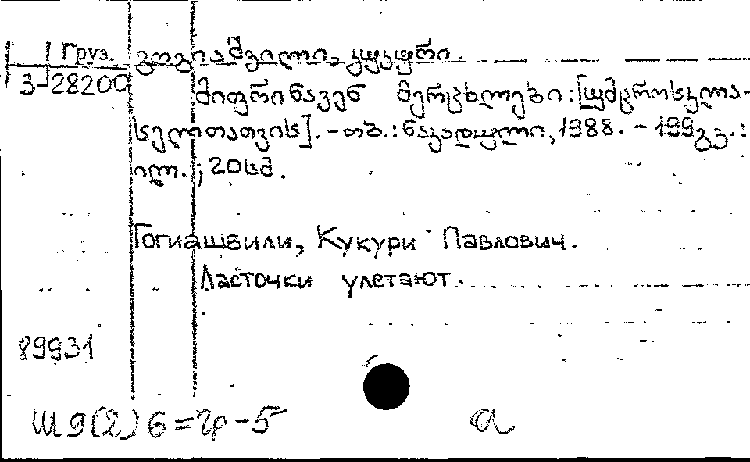 Груз.
3-28200
გოგიაშვილი, კუკური
მიფრინავენ მერცხლები: [უმცროსკლა-
სელთათვის]. - თბ.: ნაკადული, 1988. - 199გვ.:
ილ.; 20სმ.
Гогиашвили, Кукури Павлович.
Ласточки улетают.
89931
Ш9(2)6=Гр-5
а